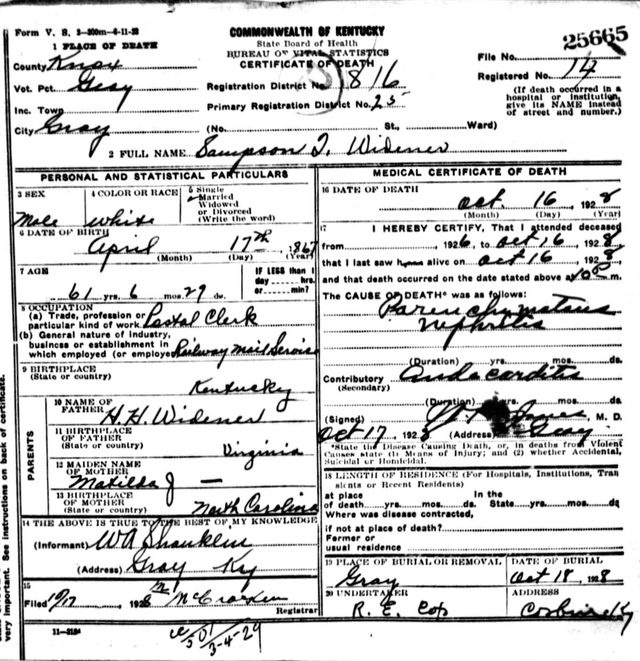 Form V. S. 2-200m-6-11-23
COMMONWEALTH OF KENTUCKY
State Board of Health
BUREAU OF VITAL STATISTICS
CERTIFICATE OF DEATH
25665
1 PLACE OF DEATH
County Knox
File No.
Registered No. 14
Vot. Pct. Gray
Registration District No. 816
(If death occurred in a hospital or institution, give its NAME instead of street and number.)
Inc. Town
Primary Registration District No. 25
City Gray (No. St., Ward)
2 FULL NAME Sampson T. Widener
PERSONAL AND STATISTICAL PARTICULARS
3 SEX
Male
4 COLOR OR RACE
White
5 Single
Married
Widowed
or Divorced
(Write the word)
6 DATE OF BIRTH
April 17th, 1867
(Month) (Day) (Year)
7 AGE
61 yrs. 6 mos. 29 ds.
IF LESS than 1
day hrs.
or min?
8 OCCUPATION
(a) Trade, profession or
particular kind of work Postal Clerk
(b) General nature of industry,
business or establishment in
which employed (or employer) Railway Mail Service
9 BIRTHPLACE
(State or country)
Kentucky
PARENTS
10 NAME OF
FATHER
H. H. Widener
11 BIRTHPLACE
OF FATHER
(State or country)
Virginia
12 MAIDEN NAME
OF MOTHER
Matilda J —
13 BIRTHPLACE
OF MOTHER
(State or country)
North Carolina
14 THE ABOVE IS TRUE TO THE BEST OF MY KNOWLEDGE
(Informant) W A Shanklin
(Address) Gray Ky
15
Filed 10/17, 1928 McCracken
Registrar
MEDICAL CERTIFICATE OF DEATH
16 DATE OF DEATH
Oct. 16 1928
(Month) (Day) (Year)
17 I HEREBY CERTIFY, That I attended deceased
from 1926, to Oct 16, 1928,
that I last saw h alive on Oct 16, 1928,
and that death occurred on the date stated above at m.
The CAUSE OF DEATH* was as follows:
Parenchymatous
Nephritis
(Duration) yrs. mos. ds.
Contributory Endocarditis
(Secondary)
(Duration) yrs. mos. ds.
(Signed) Jones M. D.
Oct 17, 1928 (Address) Gray
*State the Disease Causing Death, or, in deaths from Violent
Causes state (1) Means of Injury; and (2) whether Accidental,
Suicidal or Homicidal.
18 LENGTH OF RESIDENCE (For Hospitals, Institutions, Transients or Recent Residents)
at place In the
of death yrs. mos. ds. State yrs. mos. ds.
Where was disease contracted,
if not at place of death?
Former or
usual residence
19 PLACE OF BURIAL OR REMOVAL
Gray
DATE OF BURIAL
Oct 18, 1928
20 UNDERTAKER
R. E.
ADDRESS
Corbin Ky
11-3184
3-4-29
very important. See instructions on back of certificate.